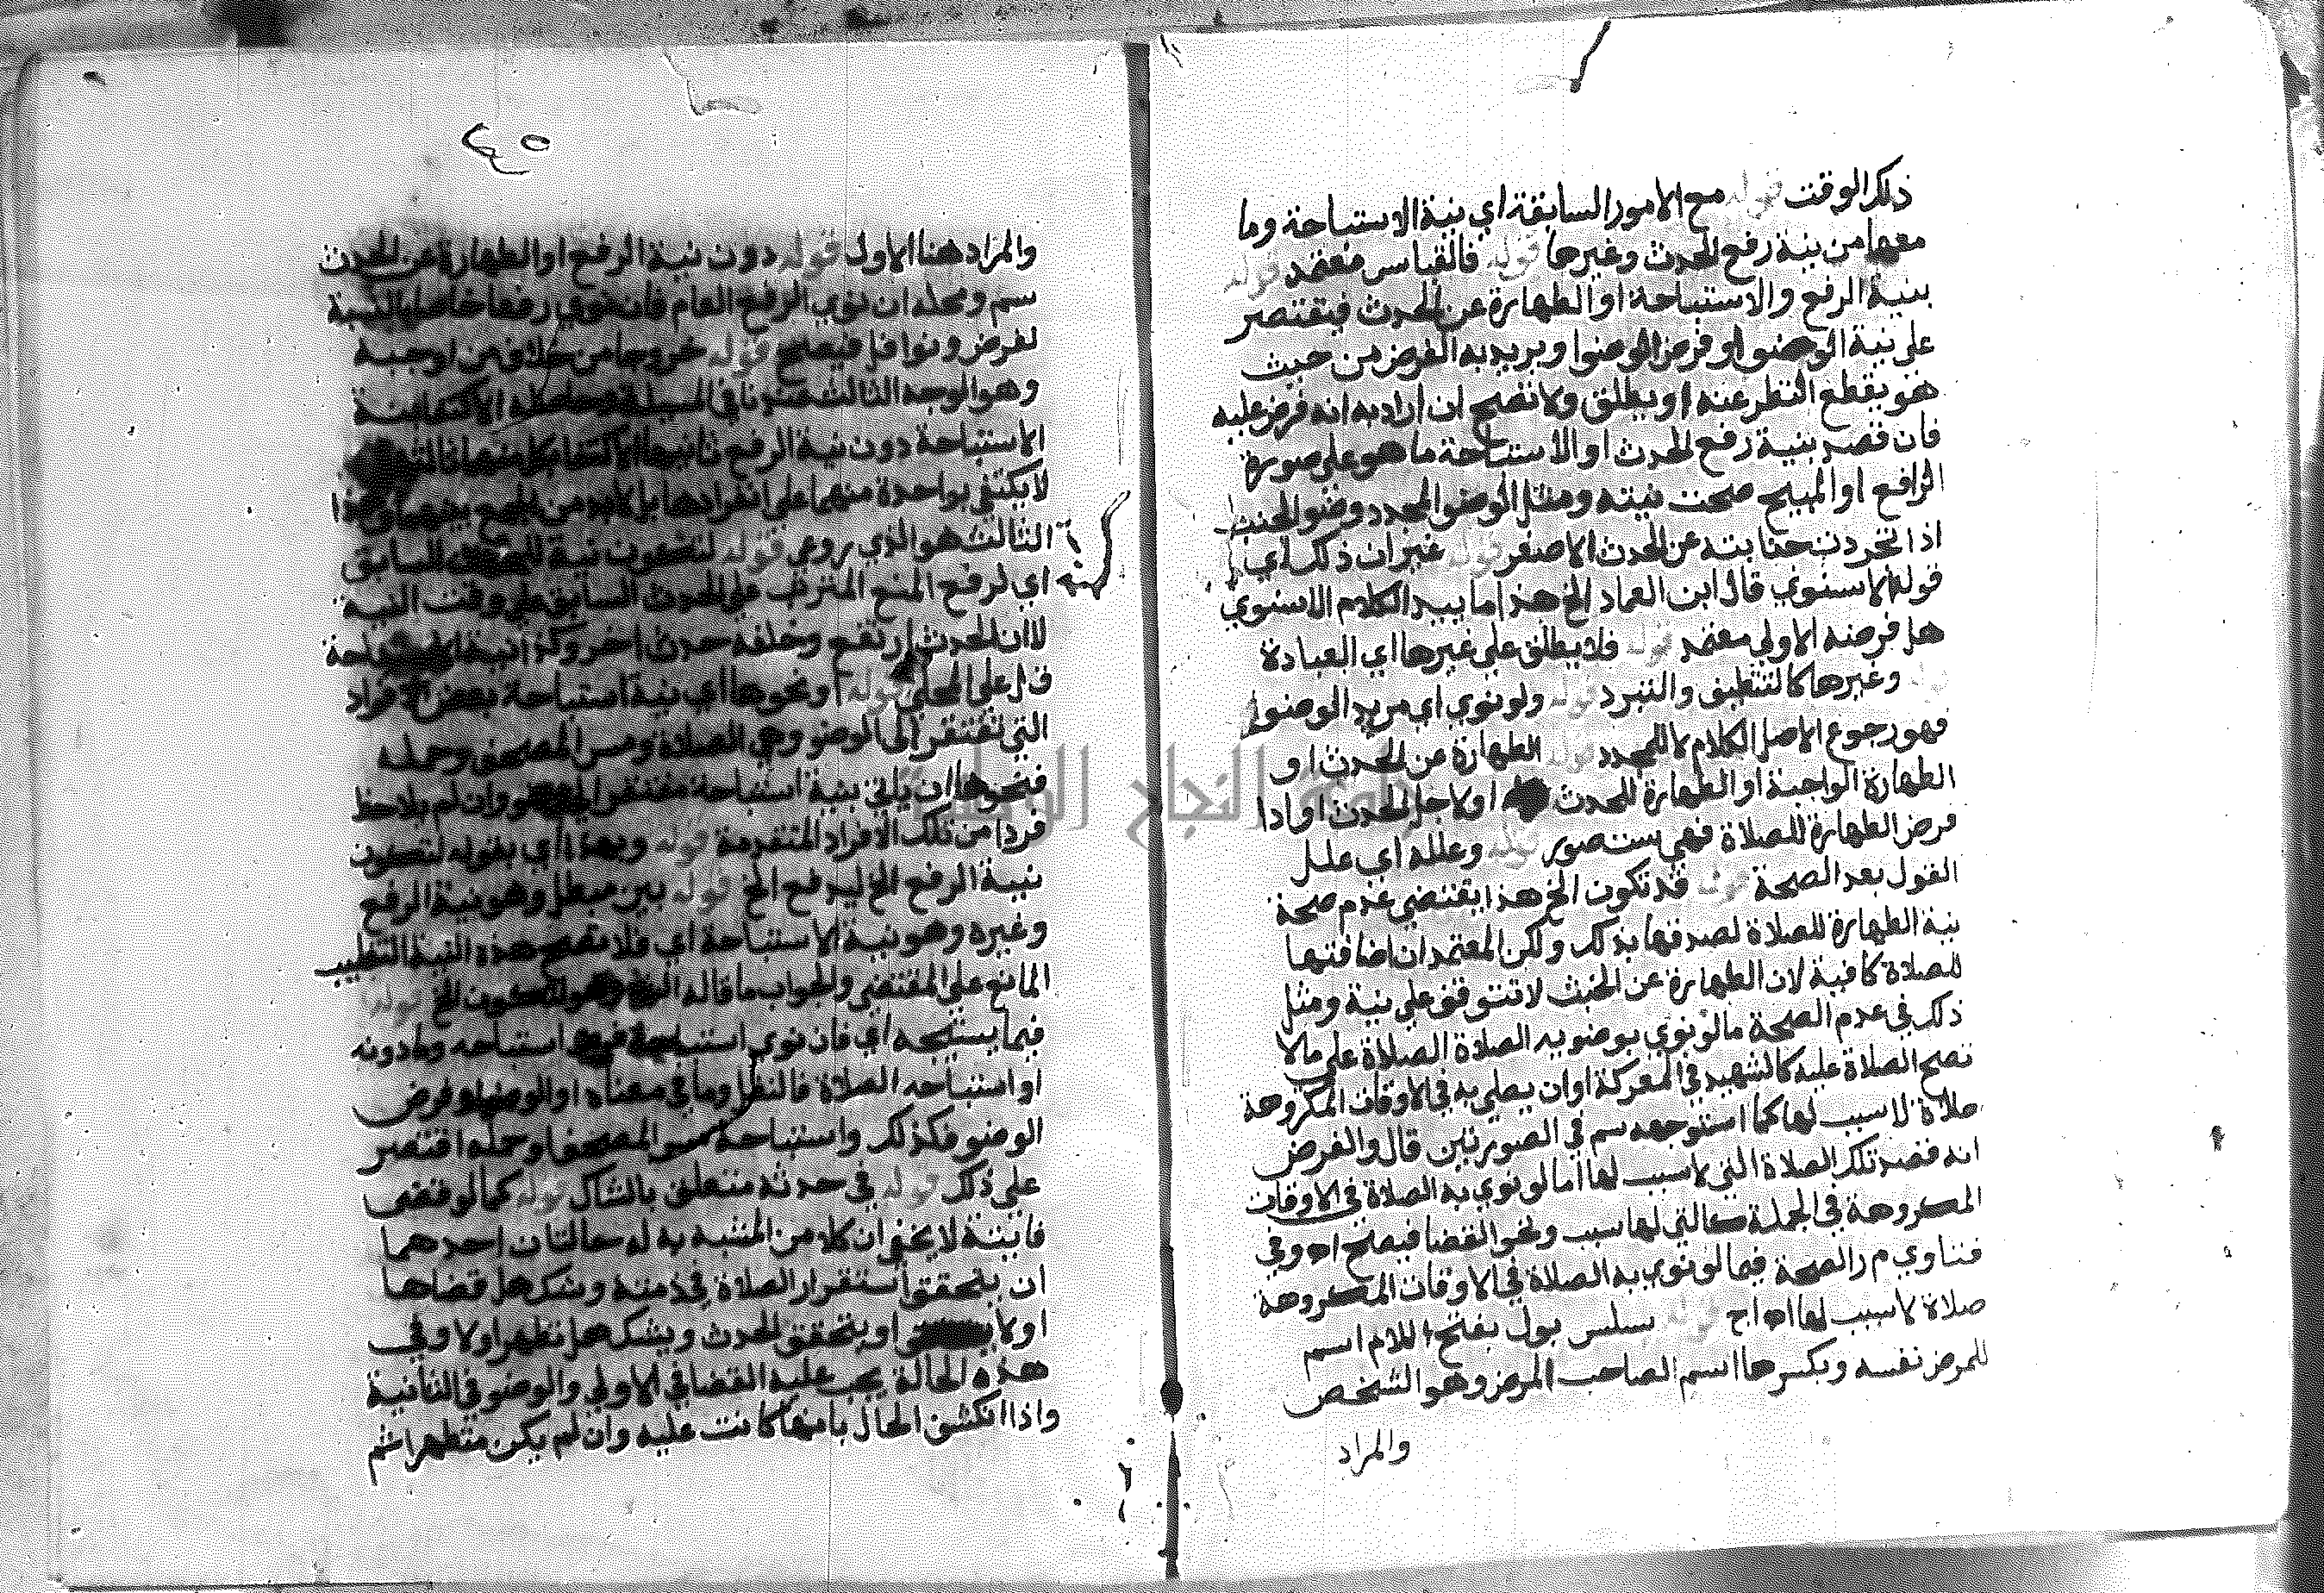 ذلك الوقت قوله مع الامور السابقة اي بنية الاستباحة وما
معها من بنية رفع الحدث وغيرها قوله فالقياس معتمد قوله
بنية الرفع والاستباحة او الطهارة عن الحدث فيقتصر
على نية الوضوا او فرض الوضوا ويريد به الفرض من حيث
هو بقطع النظر عنه او يطلق ولا تصح ان اراد به انه فرض عليه
فان قصد بنية رفع الحدث او الاستباحة ما هو على صورة
الرافع او المبيح صحت نيته ومثل الوضو المجدد وضو الجنب
اذا تجردت جنابته عن الحدث الاصغر قوله غير ان ذلك اي
قوله الاسنوي قال ابن العماد الخ هذا مابيد الكلام الاسنوي
هل فرضه الاولى معتمد قوله فلا يطلق على غيرها اي العبادة
قوله وغيرها كالتنظيف والتبرد قوله ولو نوي اي مريد الوضو
فهو رجوع الاصل الكلام لا للمجدد قوله الطهارة عن الحدث او
الطهارة الواجبة او الطهارة للحدث او لاجل الحدث او اداا
فرض الطهارة للصلاة فهي ست صور قوله وعلله اي علل
القول بعد الصحة قوله قد تكون الخ هذا يقتضي عدم صحة
نية الطهارة للصلاة لصدقها بذلك ولكن المعتمد ان اضافتها
للصلاة كافية لان الطهارة عن الخبث لا تتوقف على نية ومثل
ذلك في عدم الصحة ما لو نوي بوضويه الصلاة الصلاة على مالا
تصح الصلاة عليه كالشهيد في المعركة او ان يصلي به في الاوقات المكروهة
صلاة لا سبب لها كما استوجهه سم في الصورتين قال والفرض
انه قصد تلك الصلاة التي لا سبب لها اما لو نوي به الصلاة في الاوقات
المكروهة في الجملة كالتي لها سبب ونحو القضا فيصح اه وفي
فتاوي م ر الصحة فيما لو نوي به الصلاة في الاوقات المكروهة
صلاة لا سبب لها اه اج قوله سلس بول بفتح اللام اسم
للمرض نفسه وبكسرها اسم الصاحب المرض وهو الشخص
والمراد
والمراد هنا الاول قوله دون نية الرفع او الطهارة عن الحدث
سم ومحله ان نوي الرفع العام فان نوي رفعا خاصا بالنسبة
لفرض ونوافل فيصح قوله خروجا من خلاف من اوجبه
وهو الوجه الثالث عندنا في المسيلة وحاصله الاكتفا بنية
الاستباحة دون نية الرفع ثانيها الاكتفا بكل منهما ثالثها
لا يكتفي بواحدة منهما على انفرادها بل لابد من الجمع بينهما وهذا
الثالث هو الذي روعي قوله لتكون نية للحدث السابق
اي لرفع المنع المترتب على الحدث السابق على وقت النية
لا ان الحدث ارتفع وخلفه حدث اخر وكذا نية الاستباحة
ق ل على المحلى قوله او نحوها اي بنية استباحة بعض الافراد
التي تفتقر الى الوضو وهي الصلاة ومس المصحف وحمله
فنحوها ان ياتي بنية استباحة مفتقر الى وضو وان لم يلاحظ
فردا من تلك الافراد المتقدمة قوله وبهذا اي بقوله لتكون
نية الرفع الخ ليرفع الخ قوله بين مبطل وهو نية الرفع
وغيره وهو نية الاستباحة اي فلا تصح هذه النية التغليب
المانع على المقتضي والجواب ما قاله الشرح وهو لتكون الخ قوله
فيما يستبيحه اي فان نوي استباحة فرض استباحه وما دونه
او استباحه الصلاة فالنفل وما في معناه او الوضو او فرض
الوضو فكذلك واستباحة مس المصحف او حمله اقتصر
على ذلك قوله في حدثه متعلق بالشاك قوله كما لو قضى
فايتة لا يخفى ان كلا من المشبه به له حالتان احدهما
ان يتحقق استقرار الصلاة في ذمته ويشك هل قضاها
اولا او يتحقق الحدث ويشك هل تطهر اولا وفي
هذه الحالة يجب عليه القضا في الاولى والوضو في الثانية
واذا انكشف الحال بانها كانت عليه وان لم يكن متطهرا ثم